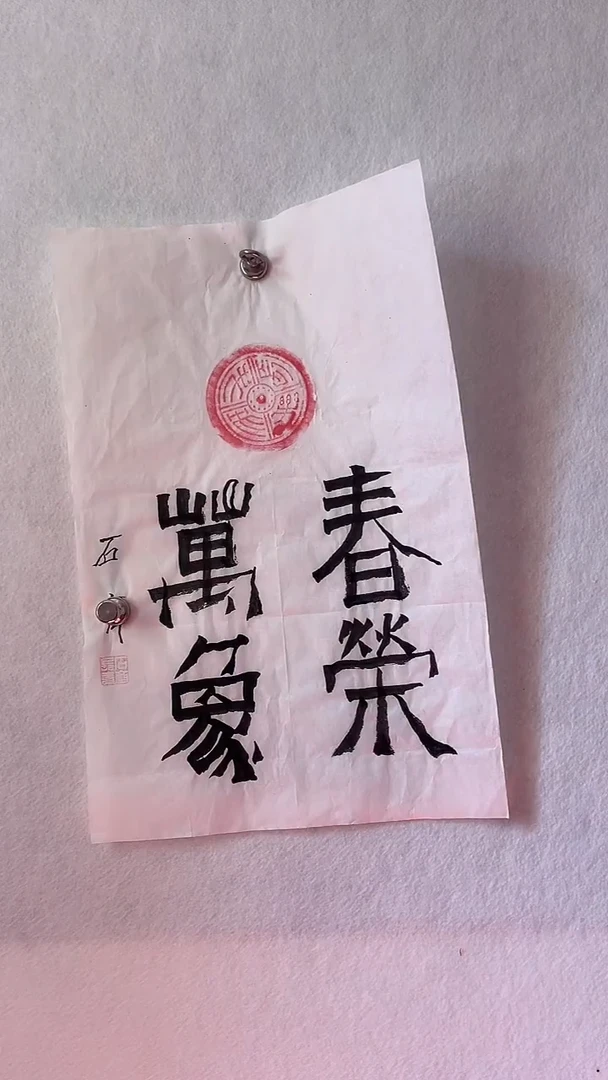 春榮
萬象
石